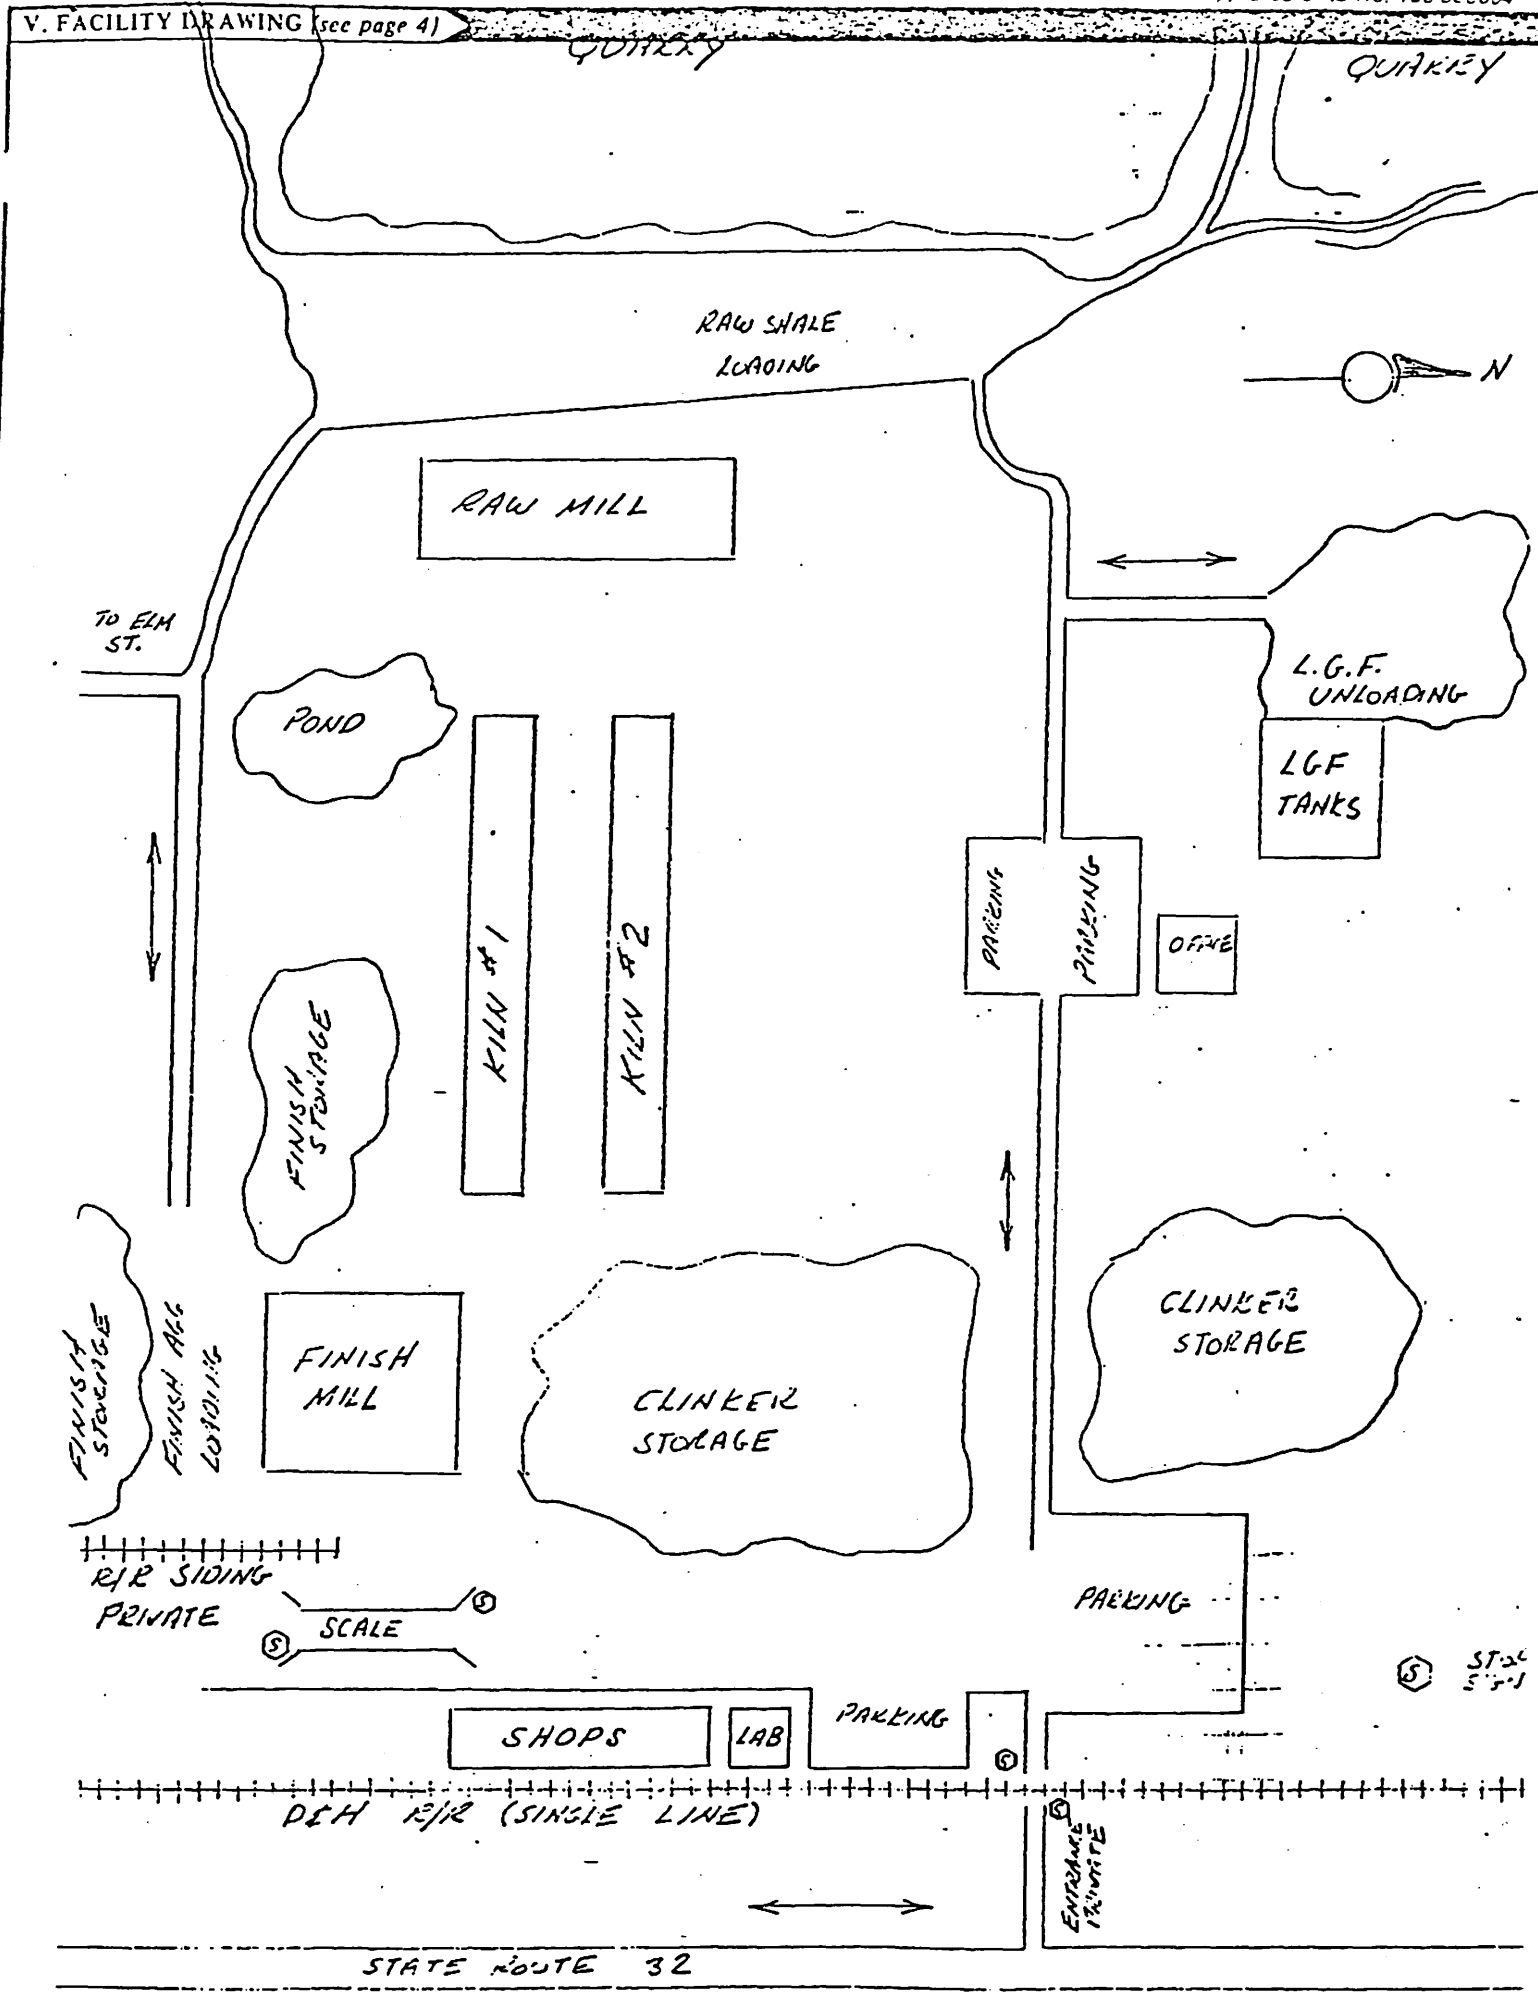 V. FACILITY DRAWING (see page 4)
QUARRY
QUARRY
RAW SHALE
LOADING
N
RAW MILL
TO ELM
ST.
L.G.F.
UNLOADING
POND
LGF
TANKS
PARKING
PARKING
OFFICE
KILN #1
KILN #2
FINISH
STORAGE
CLINKER
STORAGE
FINISH
STORAGE
FINISH AGG
LOADING
FINISH
MILL
CLINKER
STORAGE
R/R SIDING
PRIVATE
S
SCALE
S
PARKING
S
SHOPS
LAB
PARKING
S
D&H R/R (SINGLE LINE)
S
ENTRANCE
PRIVATE
STATE ROUTE 32